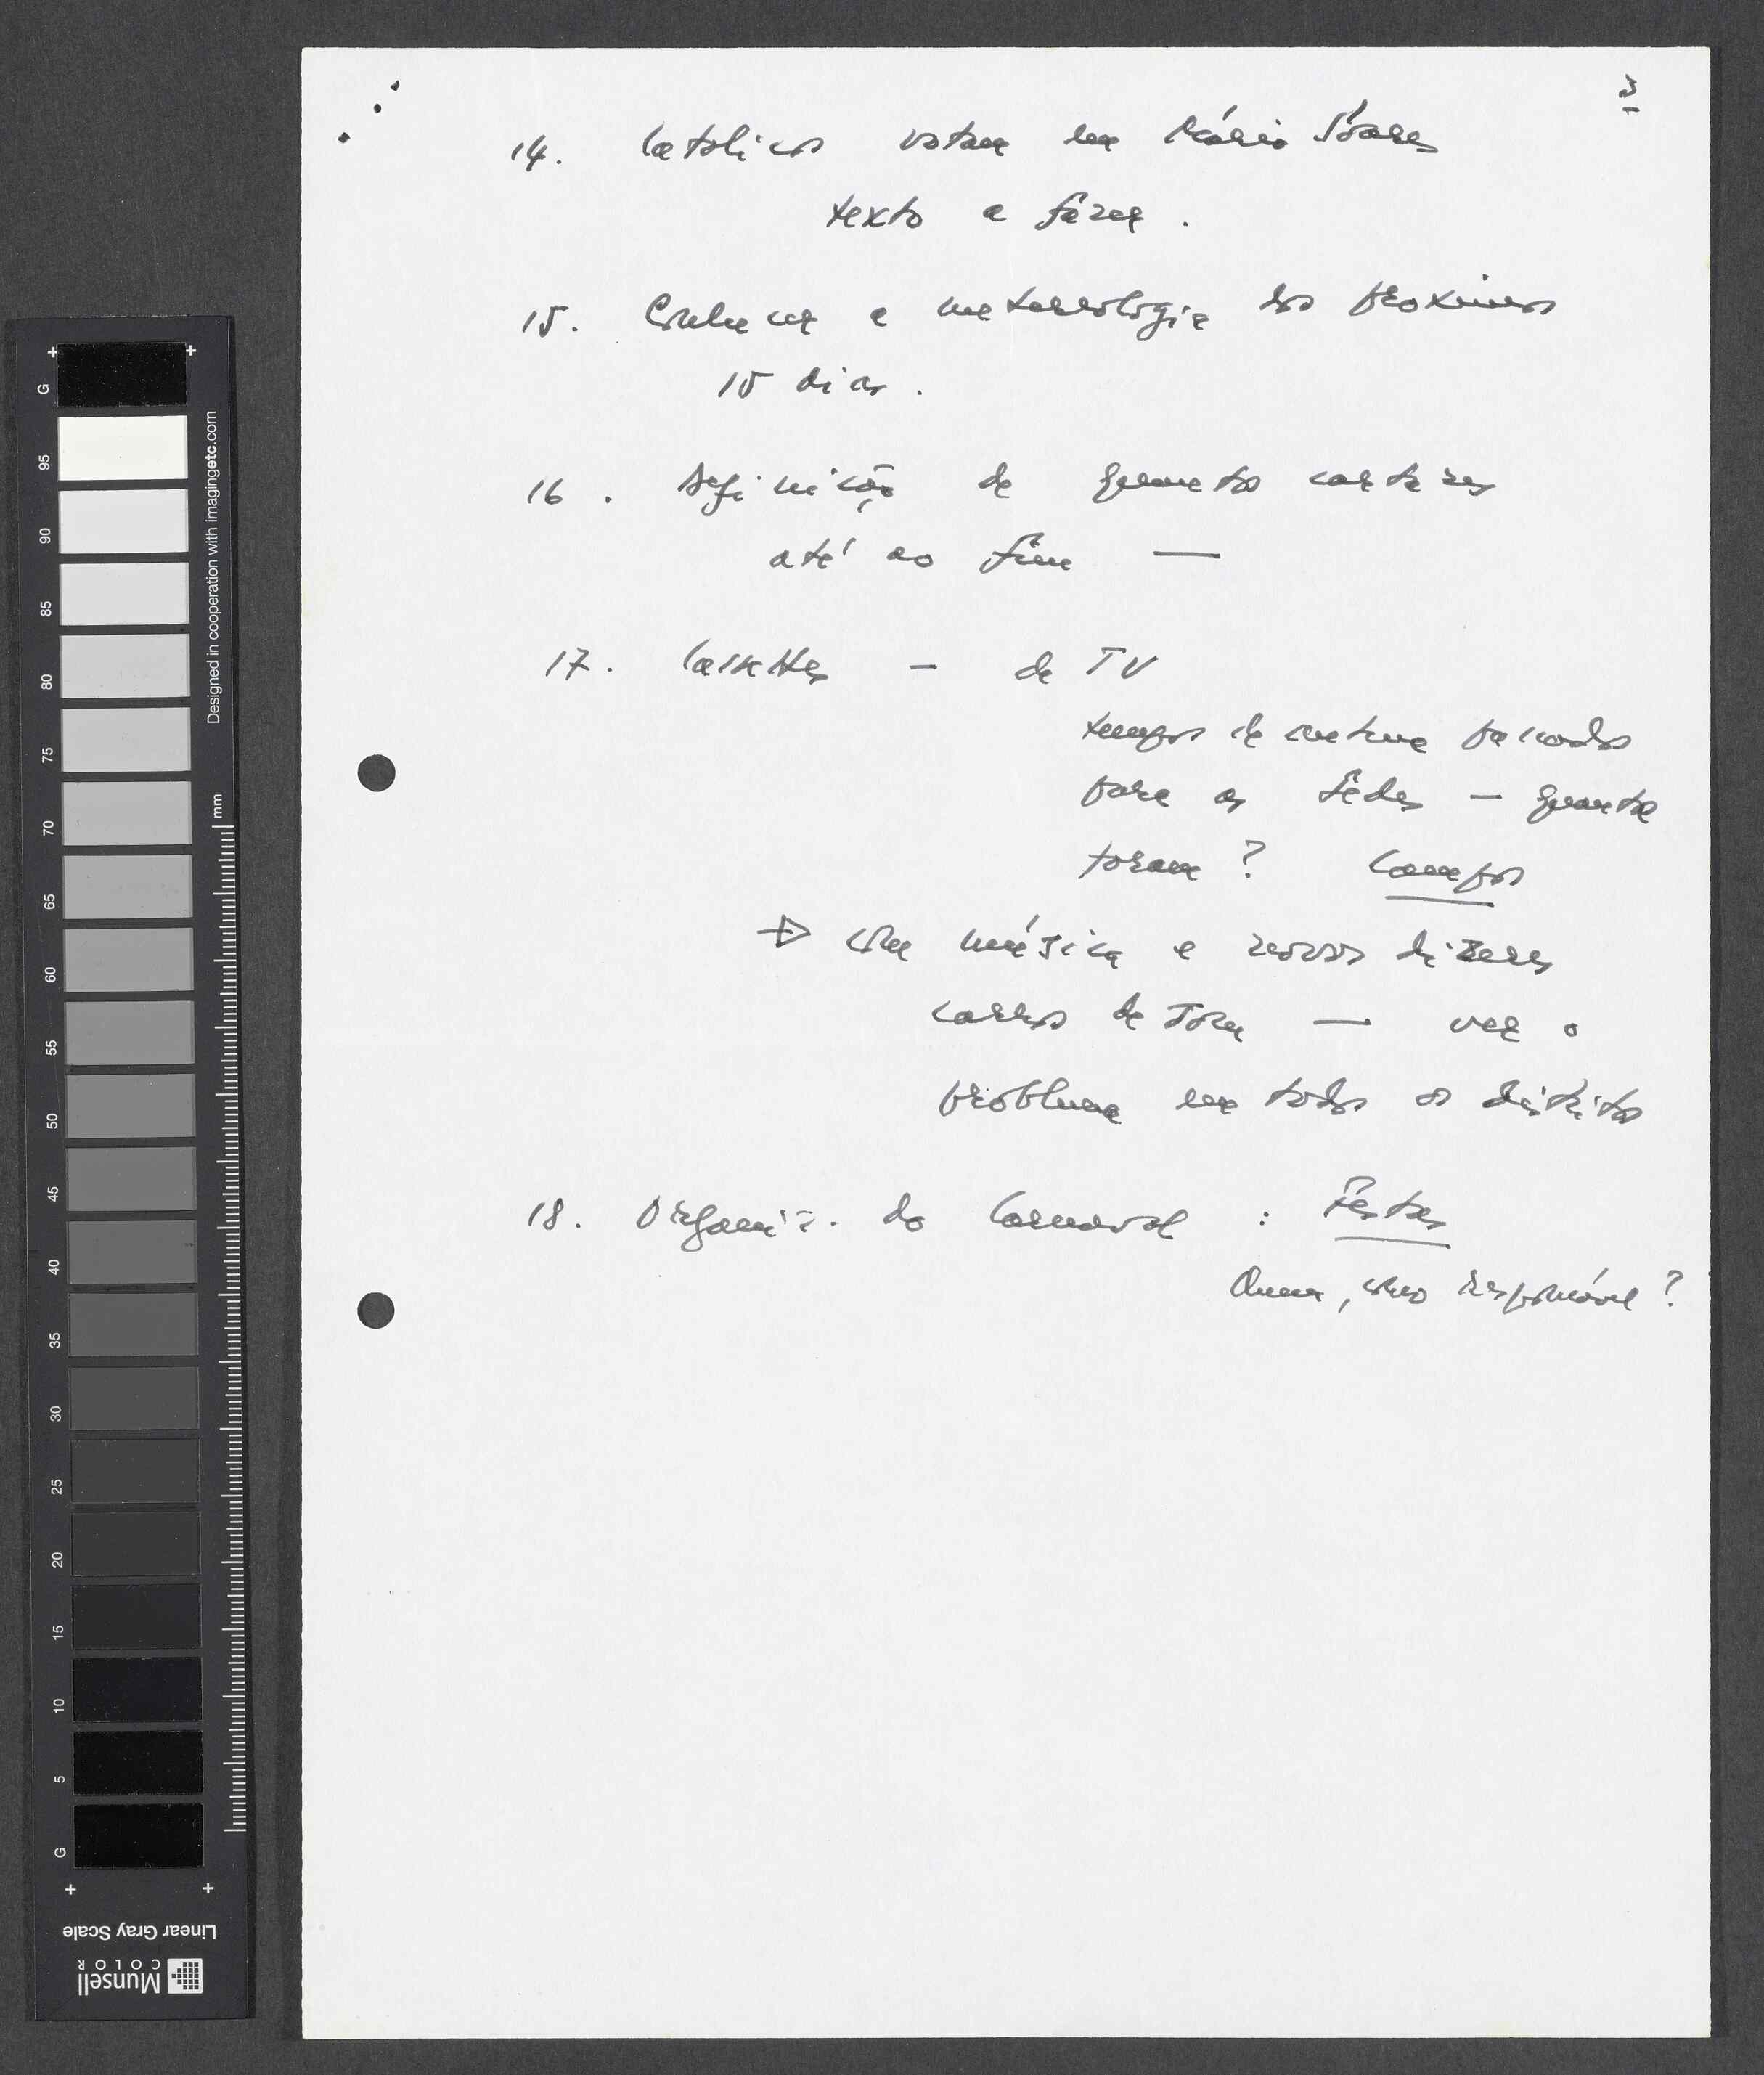 3
14. Catolicos votam em Mário Sóares
texto a fazer.
15. Conhecer a meteorologia dos proximos
15 dias.
16. Definição de quantos cartazes
até ao fim —
17. Cassettes — de TV
tempos de antena passados
para as Sédes — quantas
foram? Campos
com música e novos dizeres
carros de som — ver o
problema em todos os distritos
18. Organiz. do Carnaval : Festas
Quem, como responsável?
G
95
90
85
80
75
70
65
60
55
50
45
40
35
30
25
20
15
10
5
G
Designed in cooperation with imagingetc.com
mm
Linear Gray Scale
Munsell
COLOR